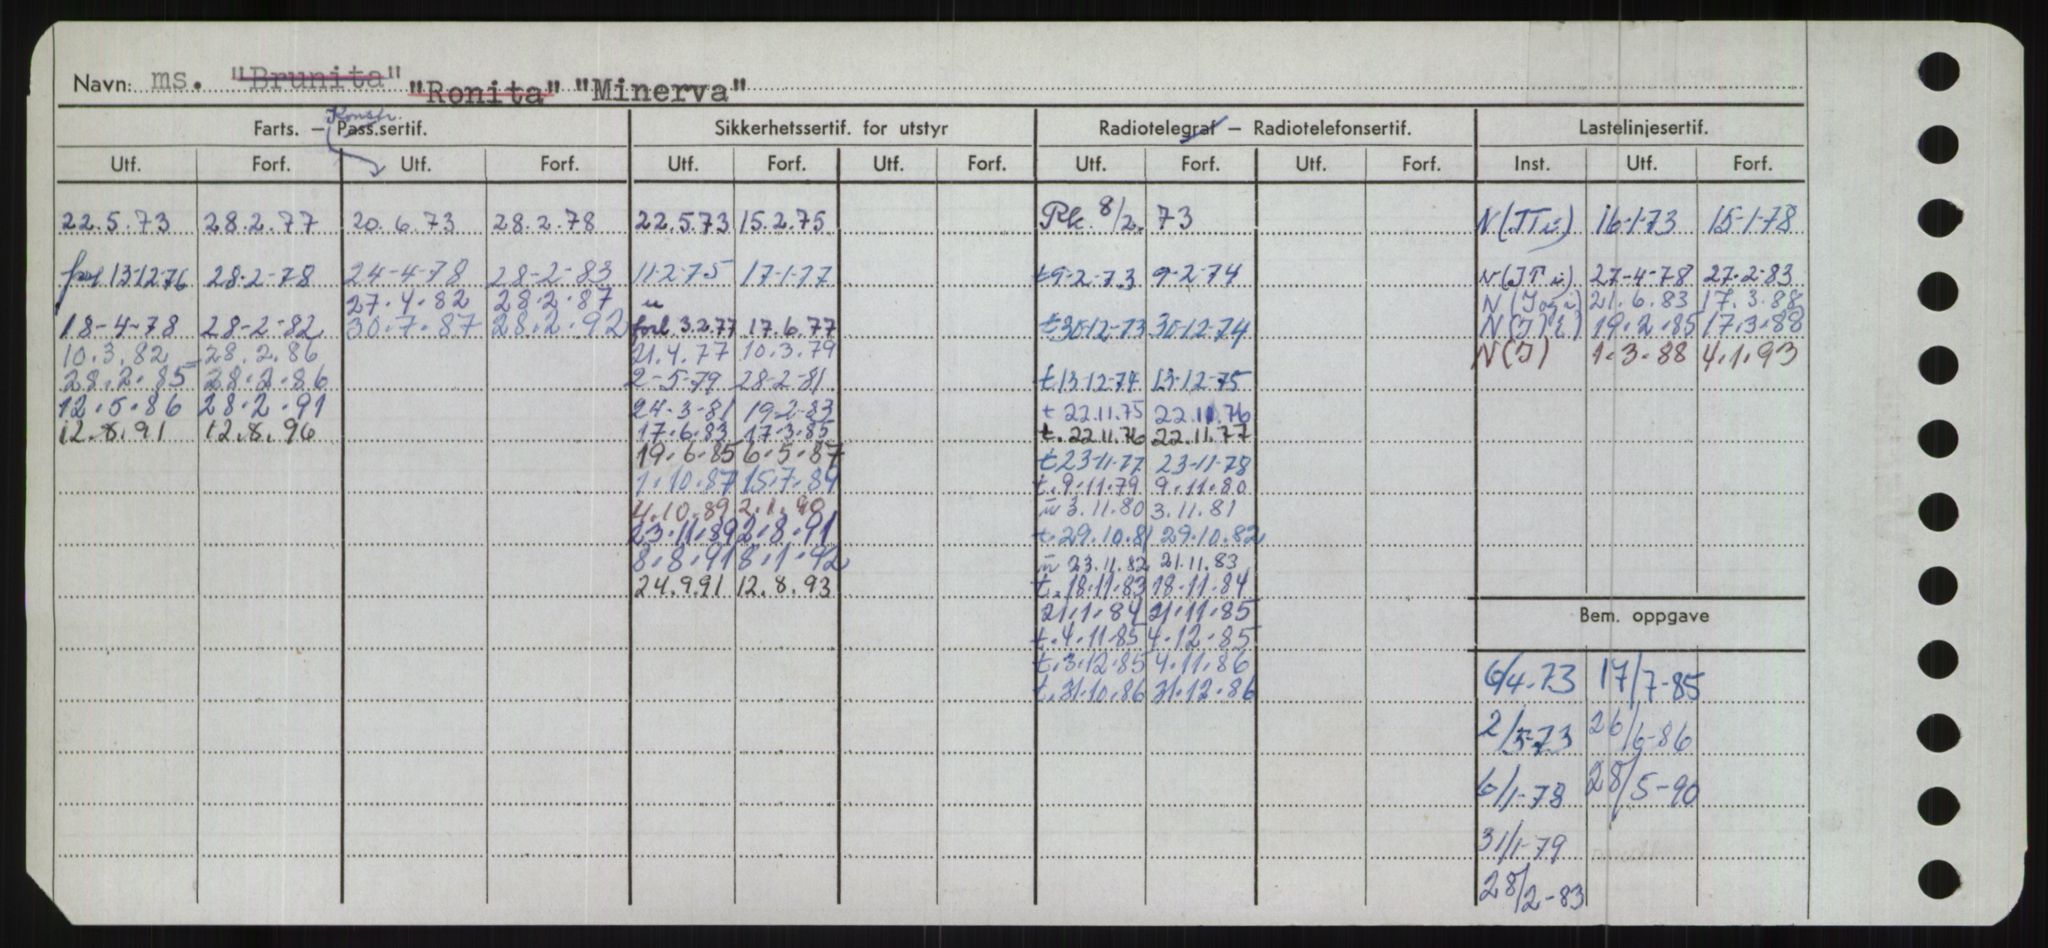 Navn: ms. "Brunita" "Ronita" "Minerva"
Konstr.
Farts. – Pass.sertif. Sikkerhetssertif. for utstyr Radiotelegraf – Radiotelefonsertif. Lastelinjesertif.
Utf. Forf. Utf. Forf. Utf. Forf. Utf. Forf. Utf. Forf. Utf. Forf. Inst. Utf. Forf.
22.5.73 28.2.77 20.6.73 28.2.78 22.5.73 15.2.75 8/2. 73 16-1-73 15-1-78
13-12-76 28-2-78 24-4-78 28-2-83 11-2-75 17-1-77 t9-2-73 9-2-74 27-4-78 27-2-83
27.4.82 28.2.87 21.6.83 17.3.88
18-4-78 28-2-82 30.7.87 28.2.92 forl 3.2.77 17.6.77 t30-12-73 30-12-74 19.2.85 17.3.88
10.3.82 28.2.86 21.4.77 10.3.79 N(I) 1.3.88 4.1.93
28.2.85 28.2.86 2-5-79 28-2-81 t13-12-74 13-12-75
12.5.86 28.2.91 24-3-81 19-2-83 t 22.11.75 22.11.76
12.8.91 12.8.96 17.6.83 17.3.85 t. 22.11.76 22.11.77
19.6.85 6.5.87 t23-11-77 23-11-78
1.10.87 15.7.89 t.9.11.79 9.11.80
4.10.89 2.1.90 3.11.80 3.11.81
23.11.89 2.8.91 t.29.10.81 29.10.82
8.8.91 8.1.92 23.11.82 21.11.83
24.9.91 12.8.93 t.18.11.83 18.11.84
21.1.84 21.11.85
Bem. oppgave
t.4.11.85 4.12.85
t.3.12.85 4.11.86
t.31.10.86 31.12.86
6/4-73 17/7-85
2/5-73 26/6-86
6/1-78 28/5-90
31/1-79
28/2-83